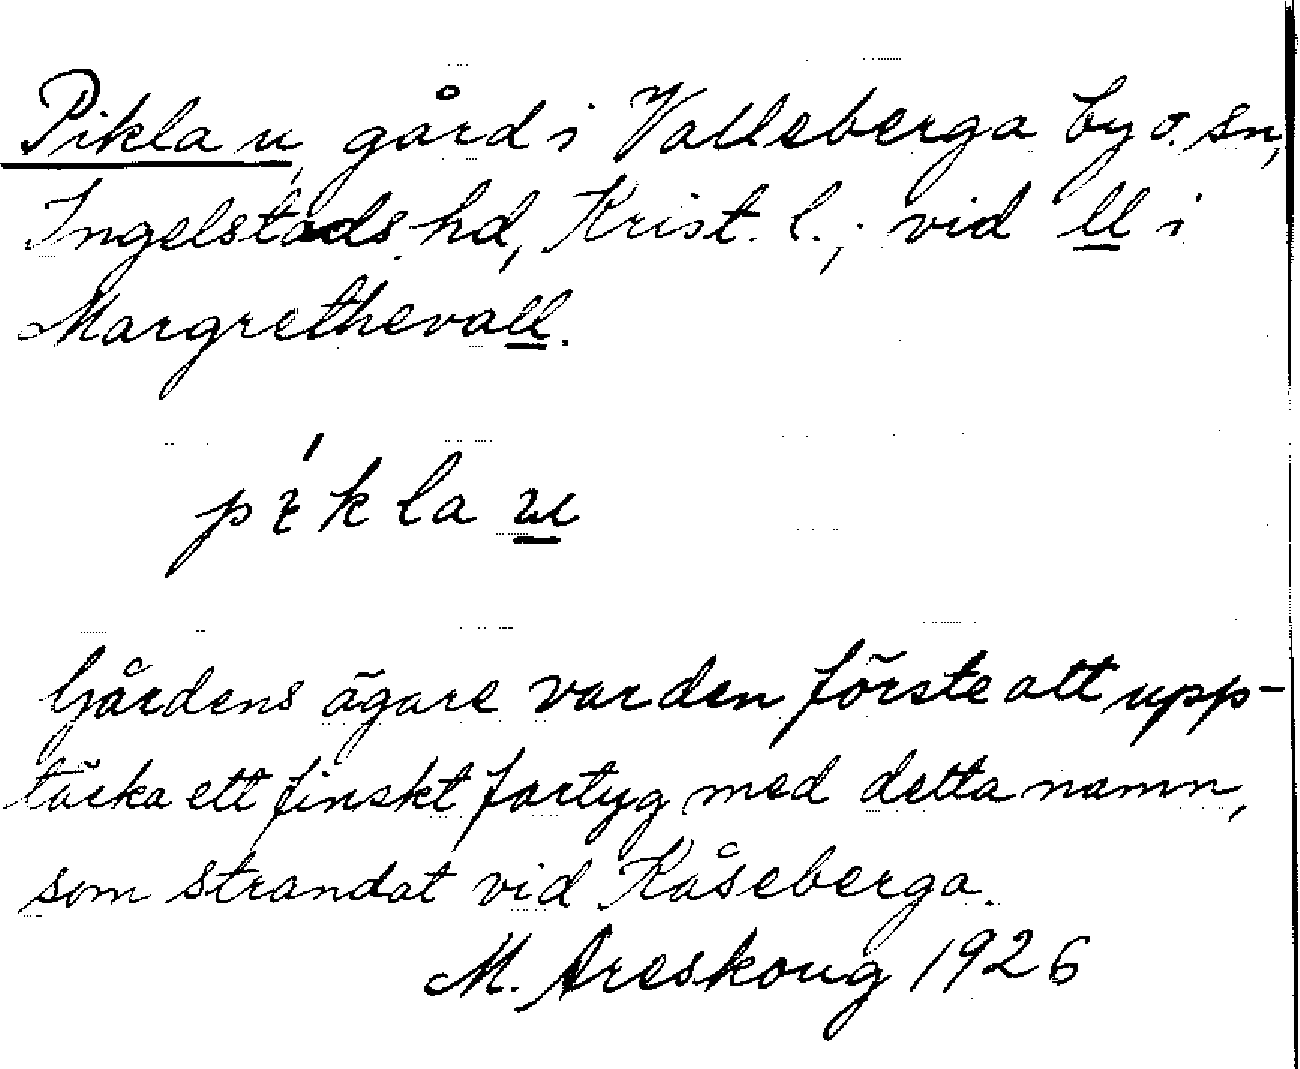 Pikla u, gård i Valleberga by o. sn,
Ingelstads hd, Krist. l.; vid ll i
Margrethevall.
pí̵kla u
Gårdens ägare var den förste att upp-
täcka ett finskt fartyg med detta namn,
som strandat vid Kåseberga.
M. Areskoug 1926